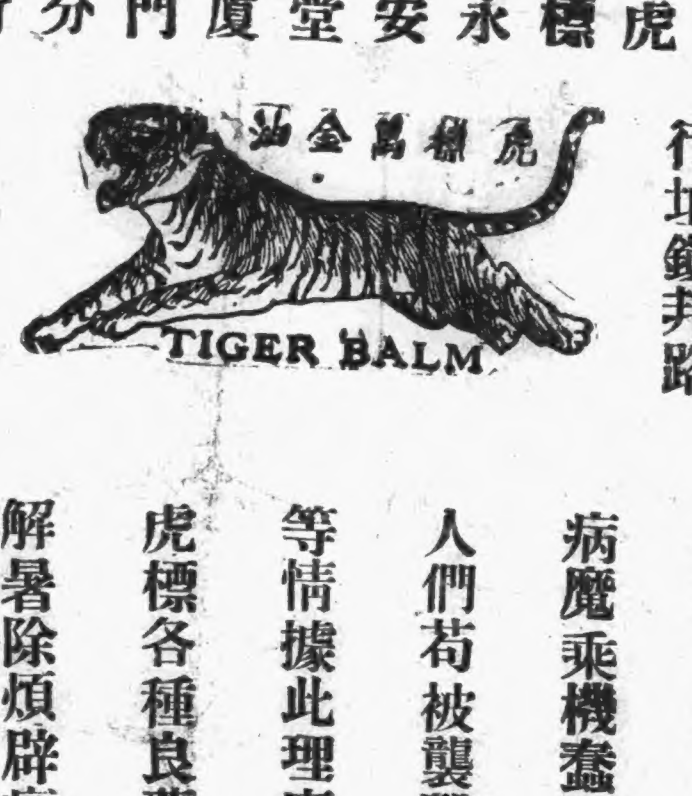 虎標永安堂廈門分行
虎標萬金油
TIGER BALM
行址鎮邦路
病魔乘機蠢
人們苟被襲
等情據此理
虎標各種良
解暑除煩辟